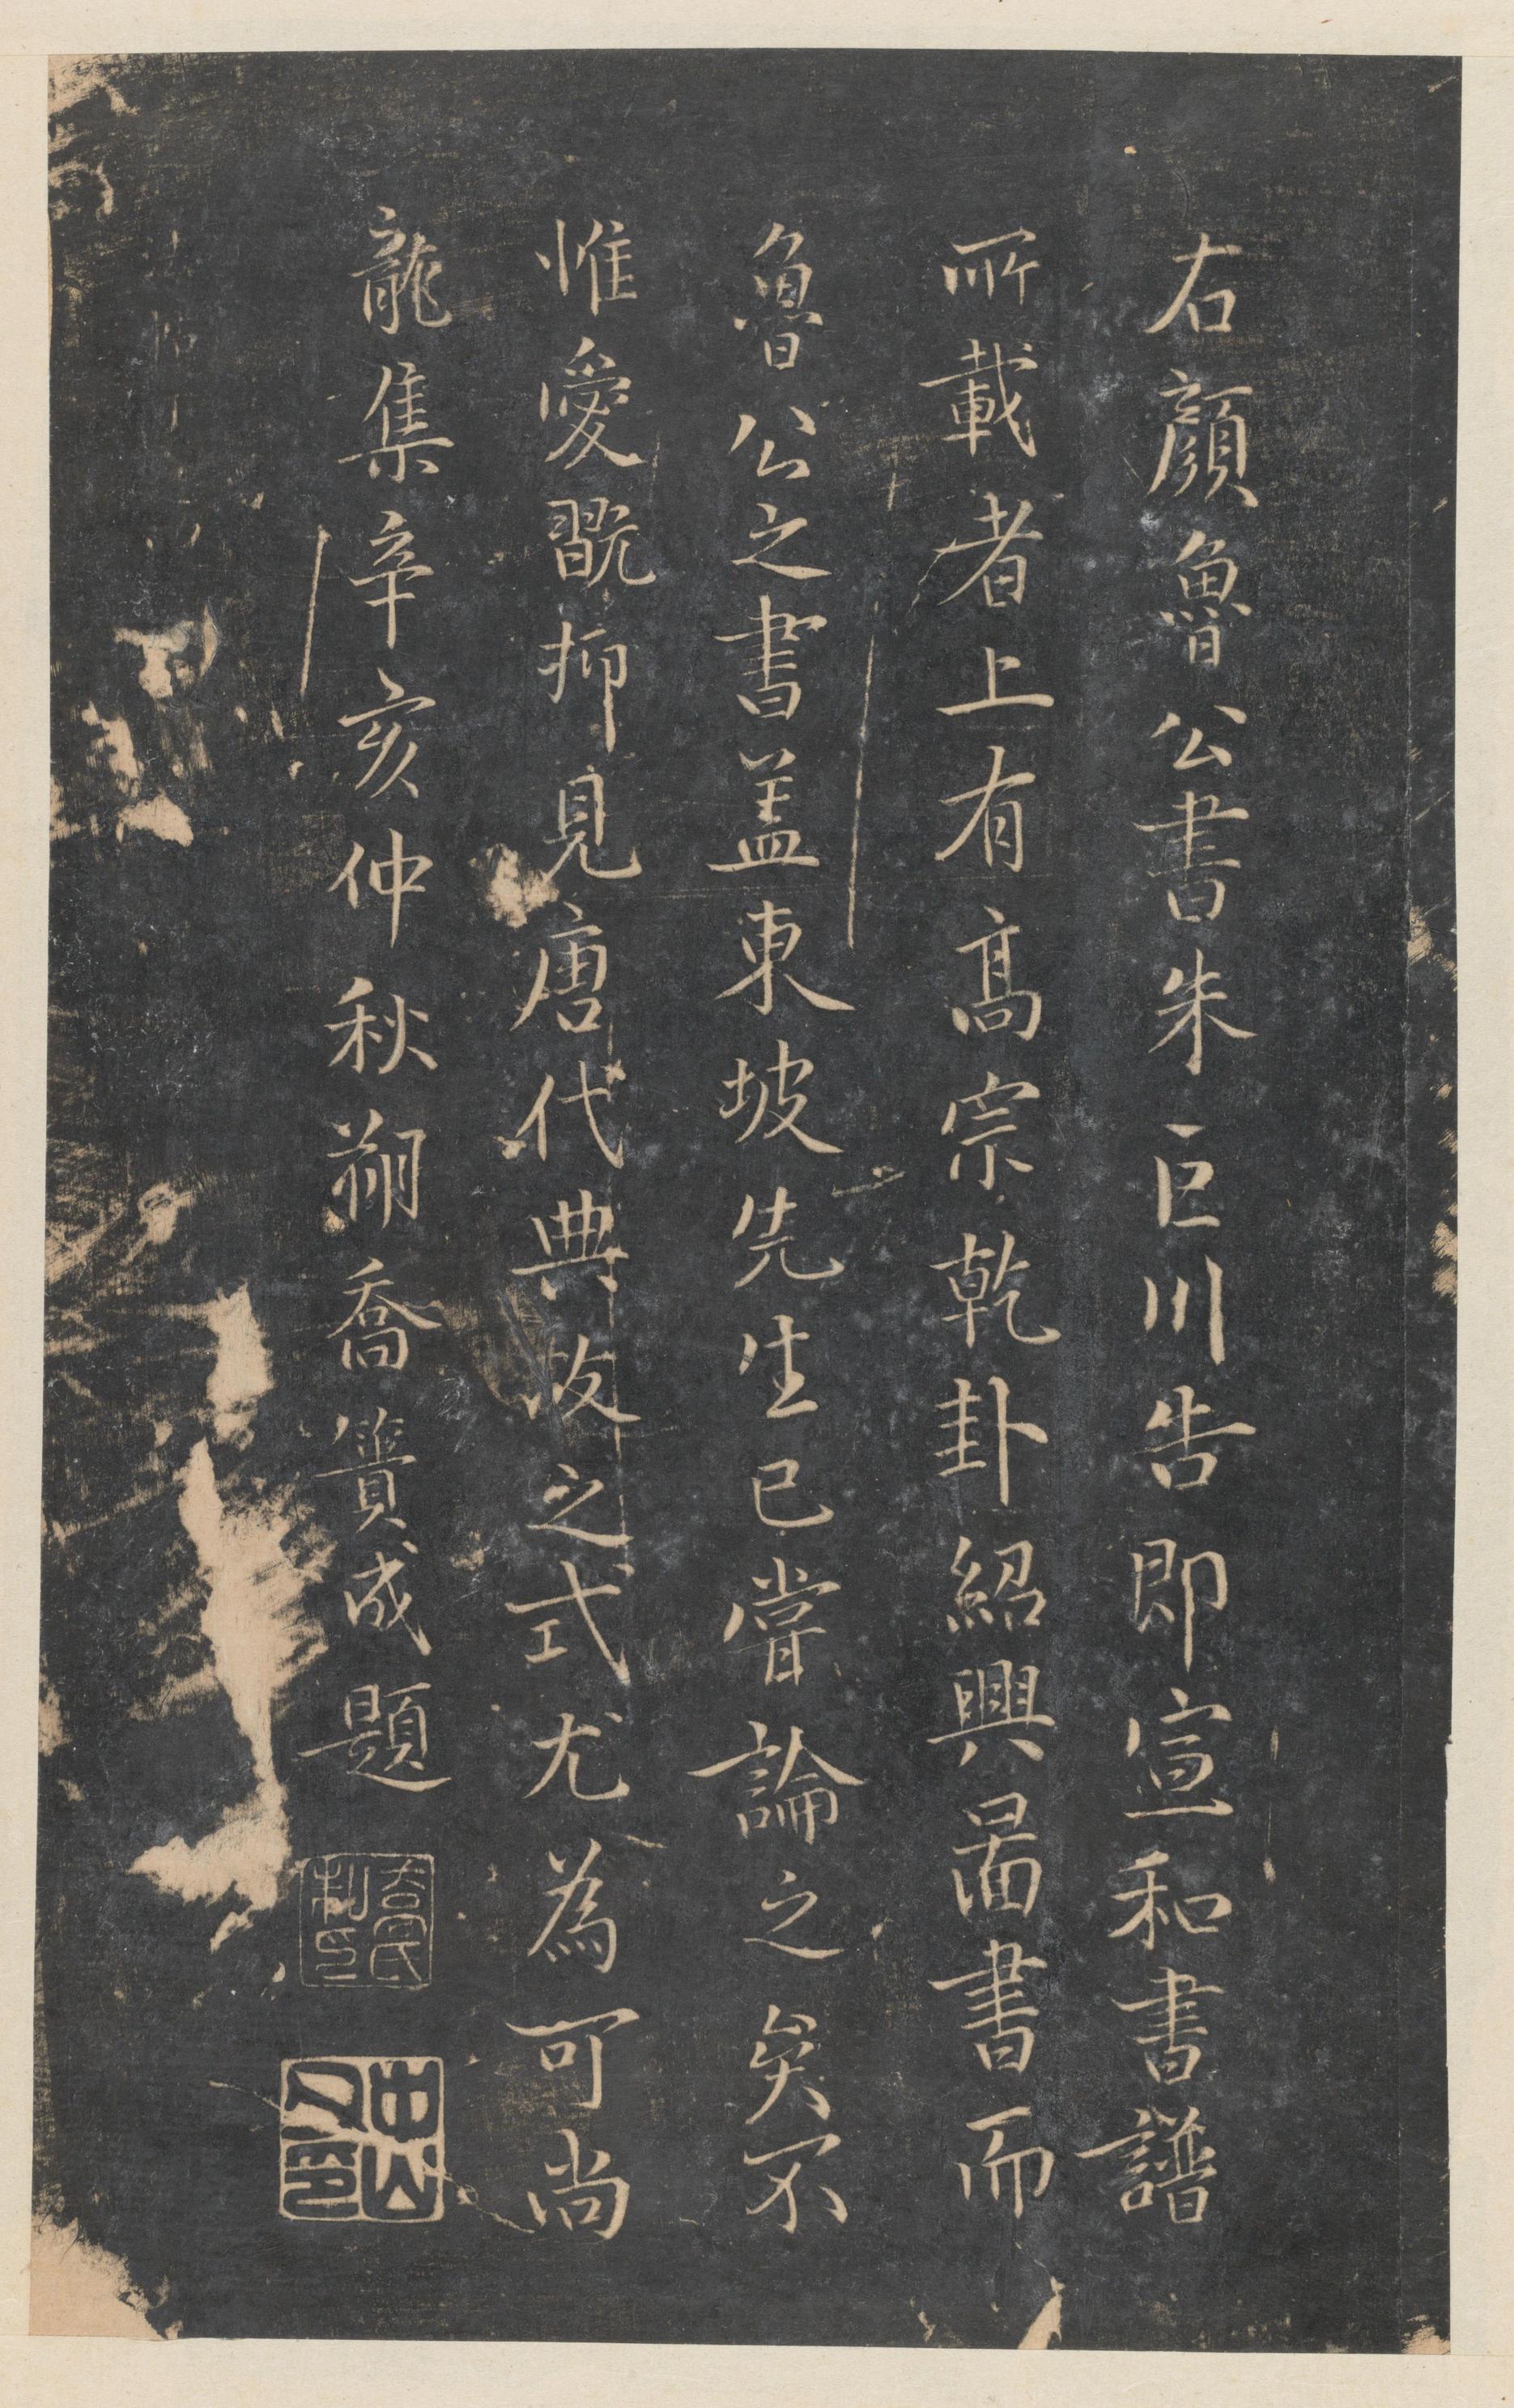 右顏魯公書朱巨川告即宣和書譜
所載者上有高宗乾卦紹興啚書而
魯公之書盖東坡先生已嘗論之矣不
惟愛翫抑見唐代典故之式尤為可尚
龍集辛亥仲秋朔喬簣成題
喬氏
中山